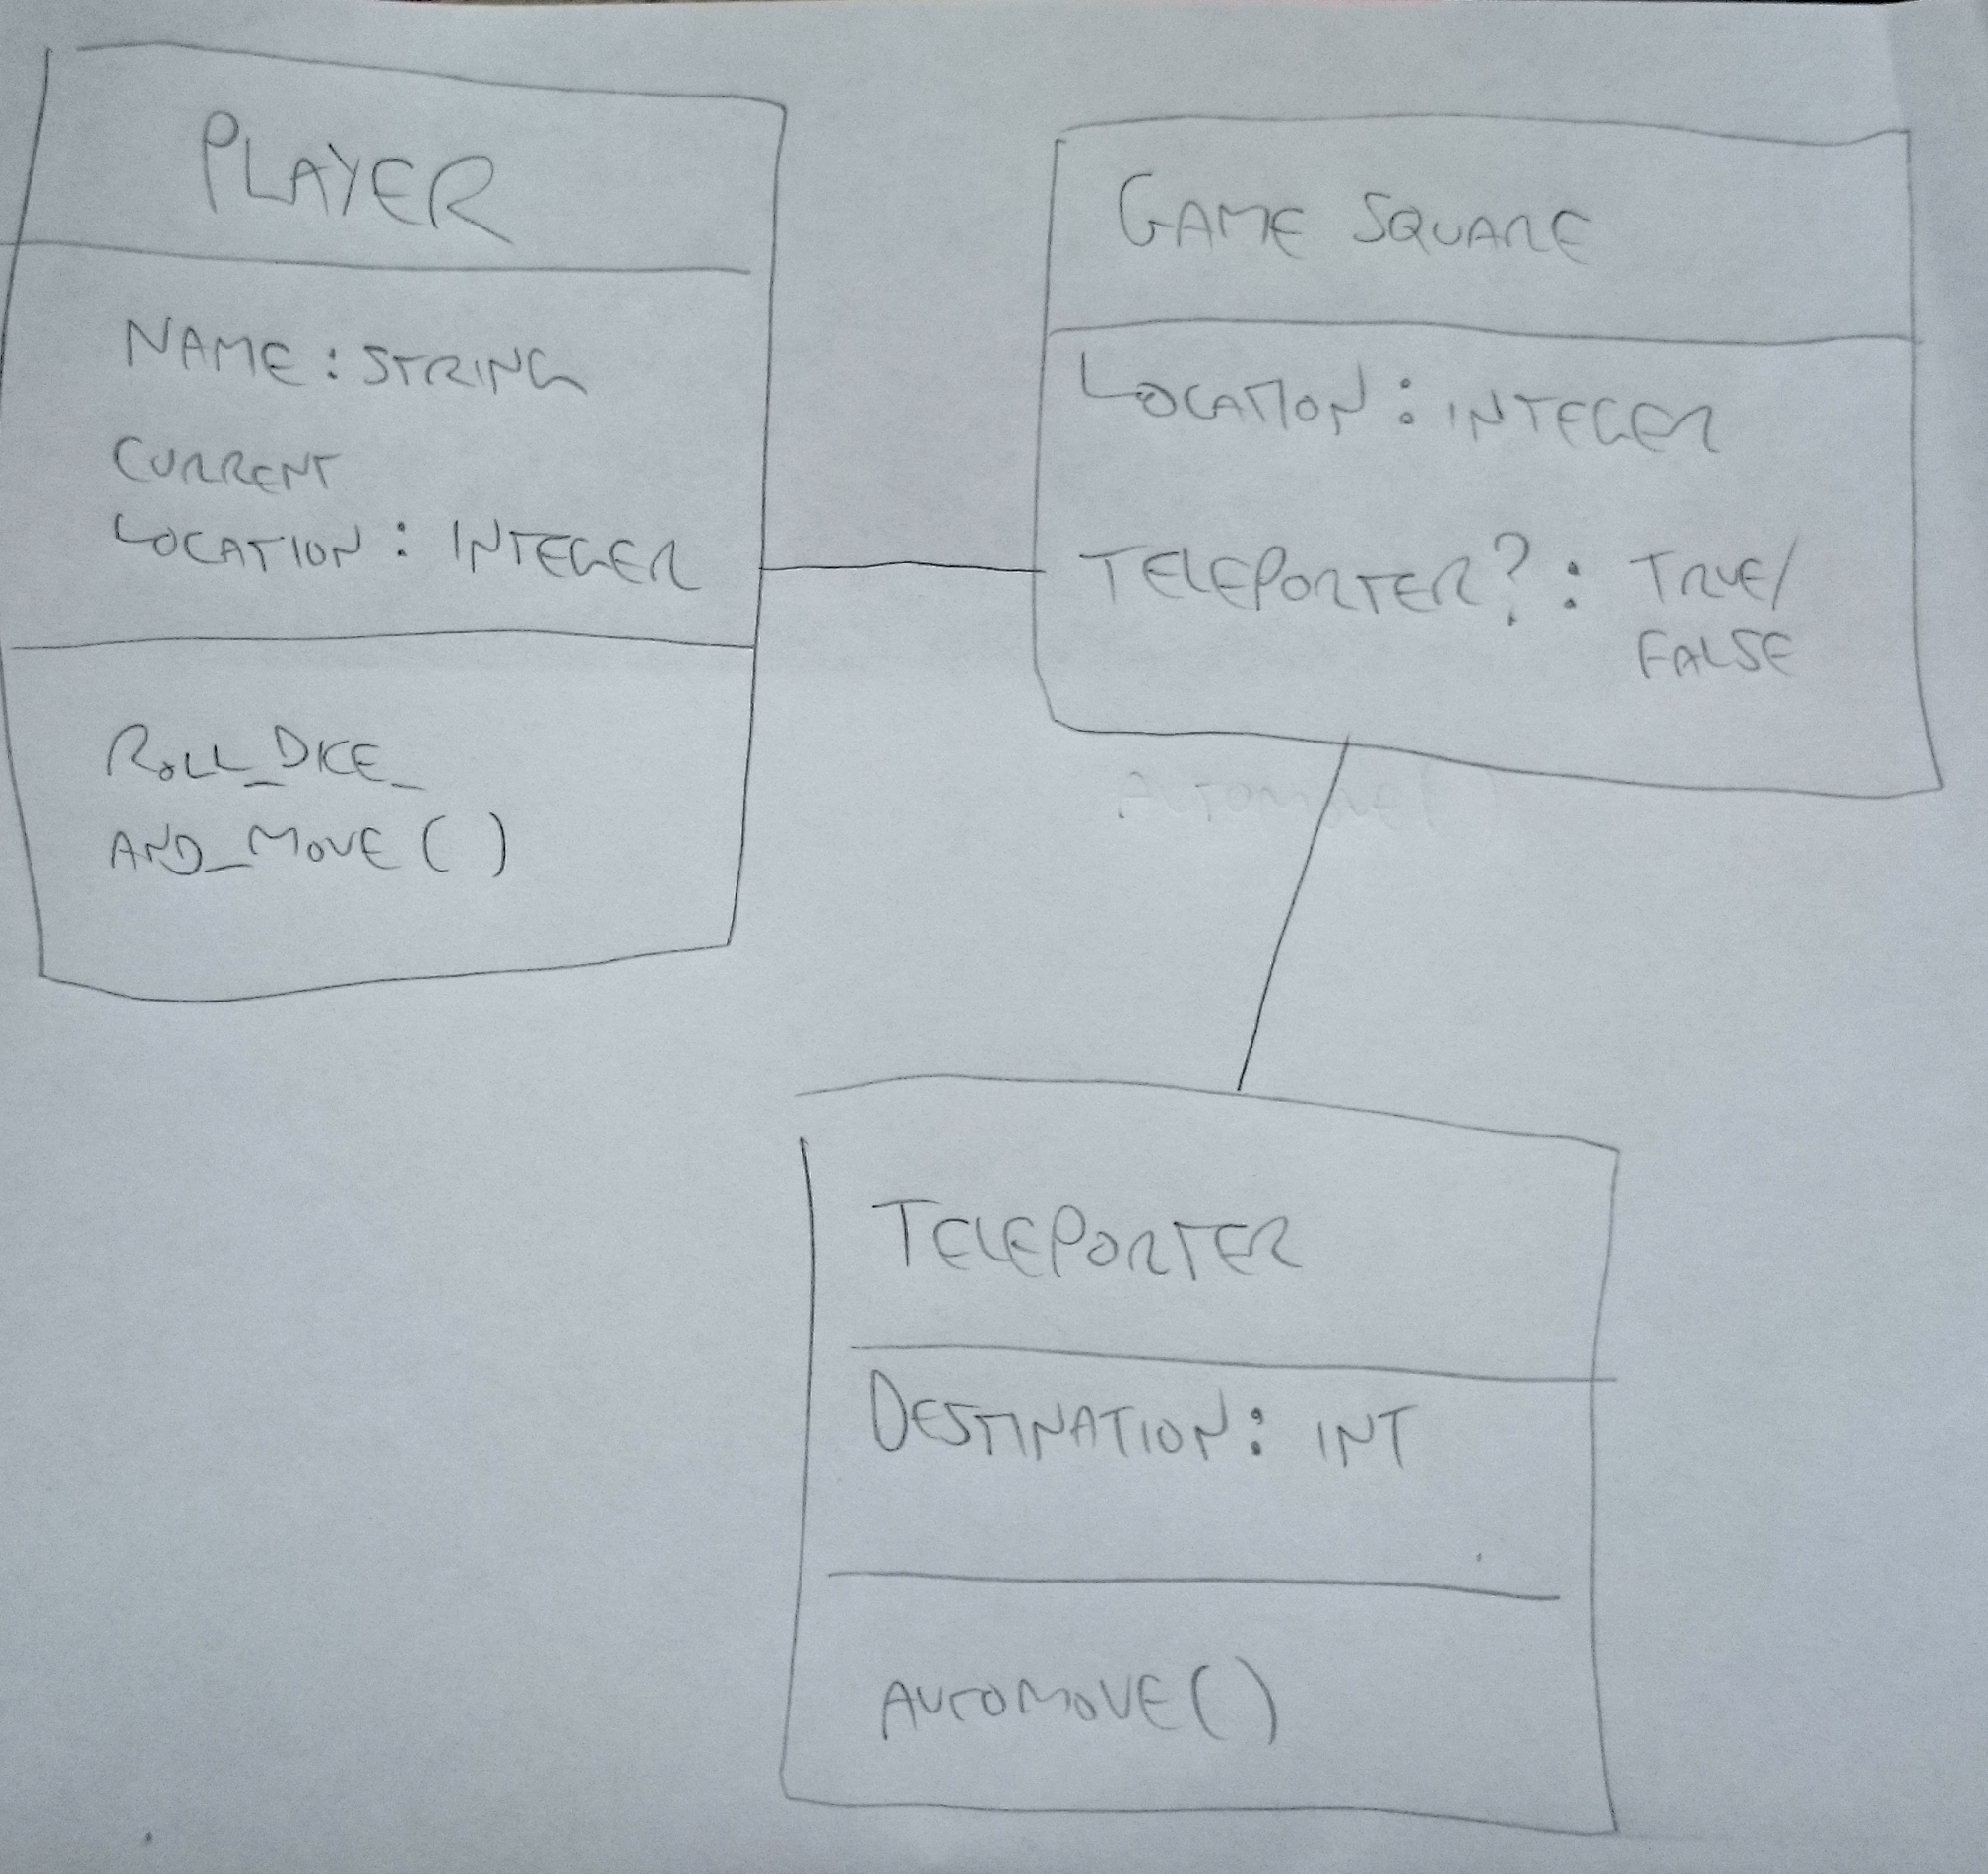 PLAYER
NAME : STRING
CURRENT
LOCATION : INTEGER
ROLL_DICE_
AND_MOVE ( )
GAME SQUARE
LOCATION : INTEGER
TELEPORTER? : TRUE/
FALSE
AUTOMOVE ( )
TELEPORTER
DESTINATION : INT
AUTOMOVE ( )